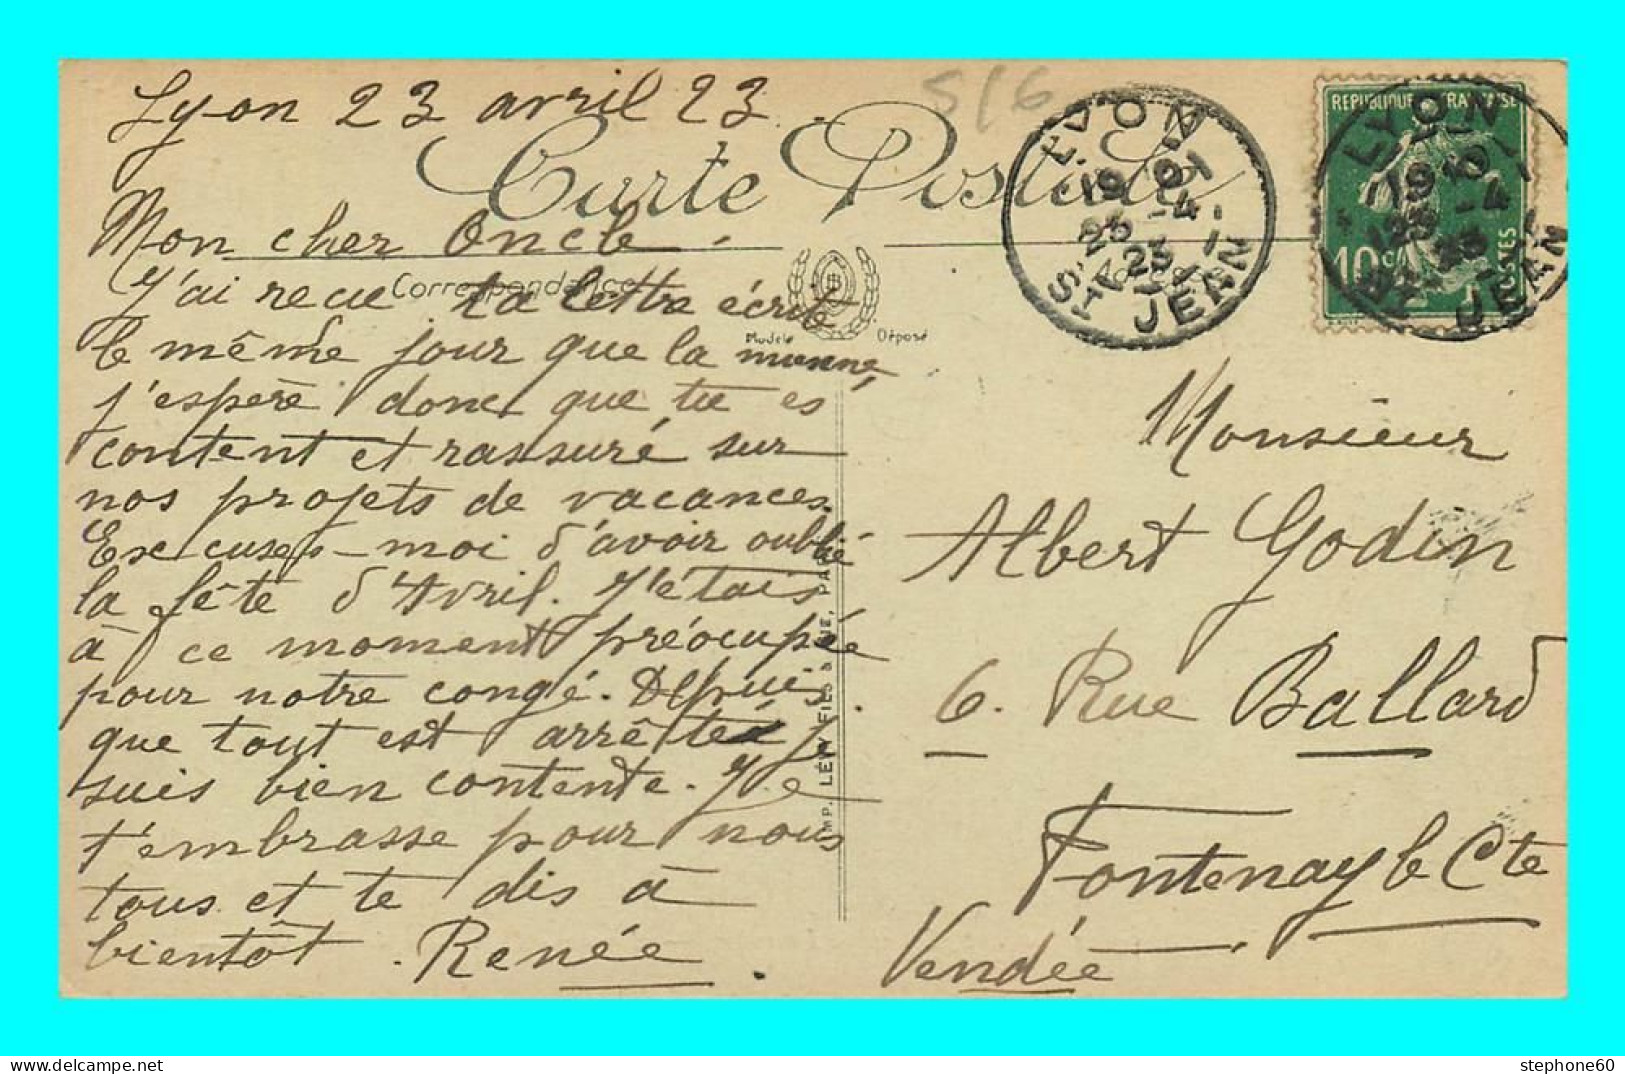 5/6
Lyon 23 avril 23.
Carte Postale
Mon cher Oncle.
Correspondance
J'ai recue ta lettre écrite
Modèle Déposé
le même jour que la mienne,
j'espère donc que tu es
content et rassuré sur
nos projets de vacances.
Excuses-moi d'avoir oublié
la fête d'Avril. J'étais
à ce moment préocupée
pour notre congé. Depuis
que tout est arrêté je
suis bien contente. Je
t'embrasse pour nous
tous et te dis à
bientôt. Renée.
IMP. LÉVY FILS & CIE, PARIS
LYON
19 01
23 -4
23
ST JEAN
REPUBLIQUE FRANÇAISE
10c
LYON
19 01
23 -4
23
ST JEAN
Monsieur
Albert Godin
6. Rue Ballard
Fontenay le Cte
Vendée
stephone60